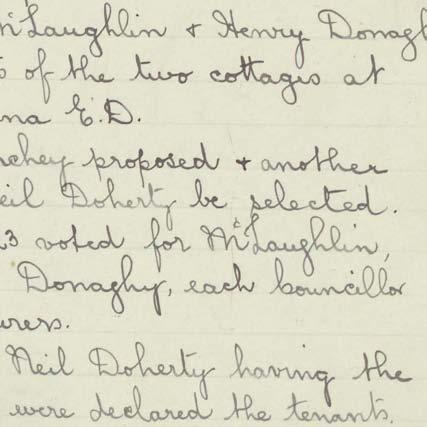 McLaughlin & Henry Donagh
s of the two cottages at
na E.D.
chey proposed + another
eil Doherty be selected.
3 voted for McLaughlin,
Donaghy, each councillor
urers.
Neil Doherty having the
were declared the tenants.